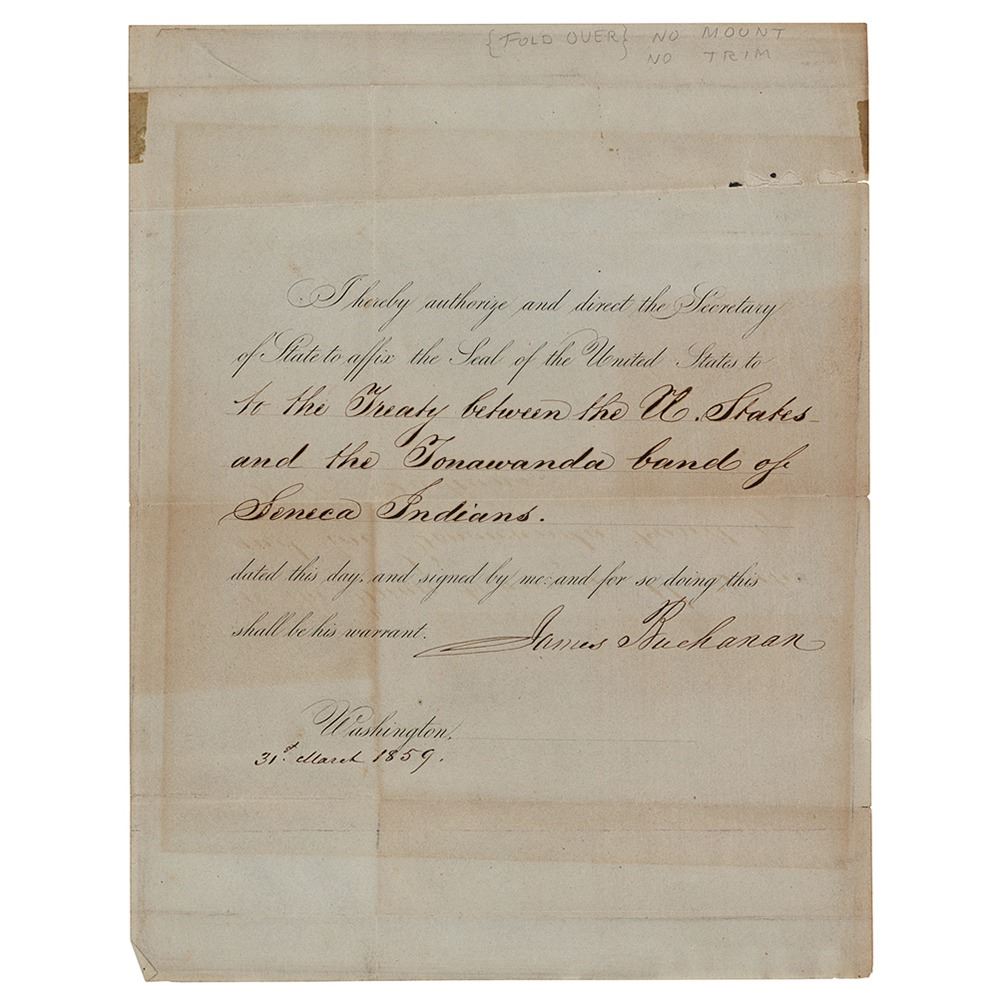 {FOLD OVER} NO MOUNT
NO TRIM
I hereby authorize and direct the Secretary
of State to affix the Seal of the United States to
to the Treaty between the U. States
and the Tonawanda band of
Seneca Indians.
dated this day, and signed by me: and for so doing this
shall be his warrant.
James Buchanan
Washington,
31st March 1859.